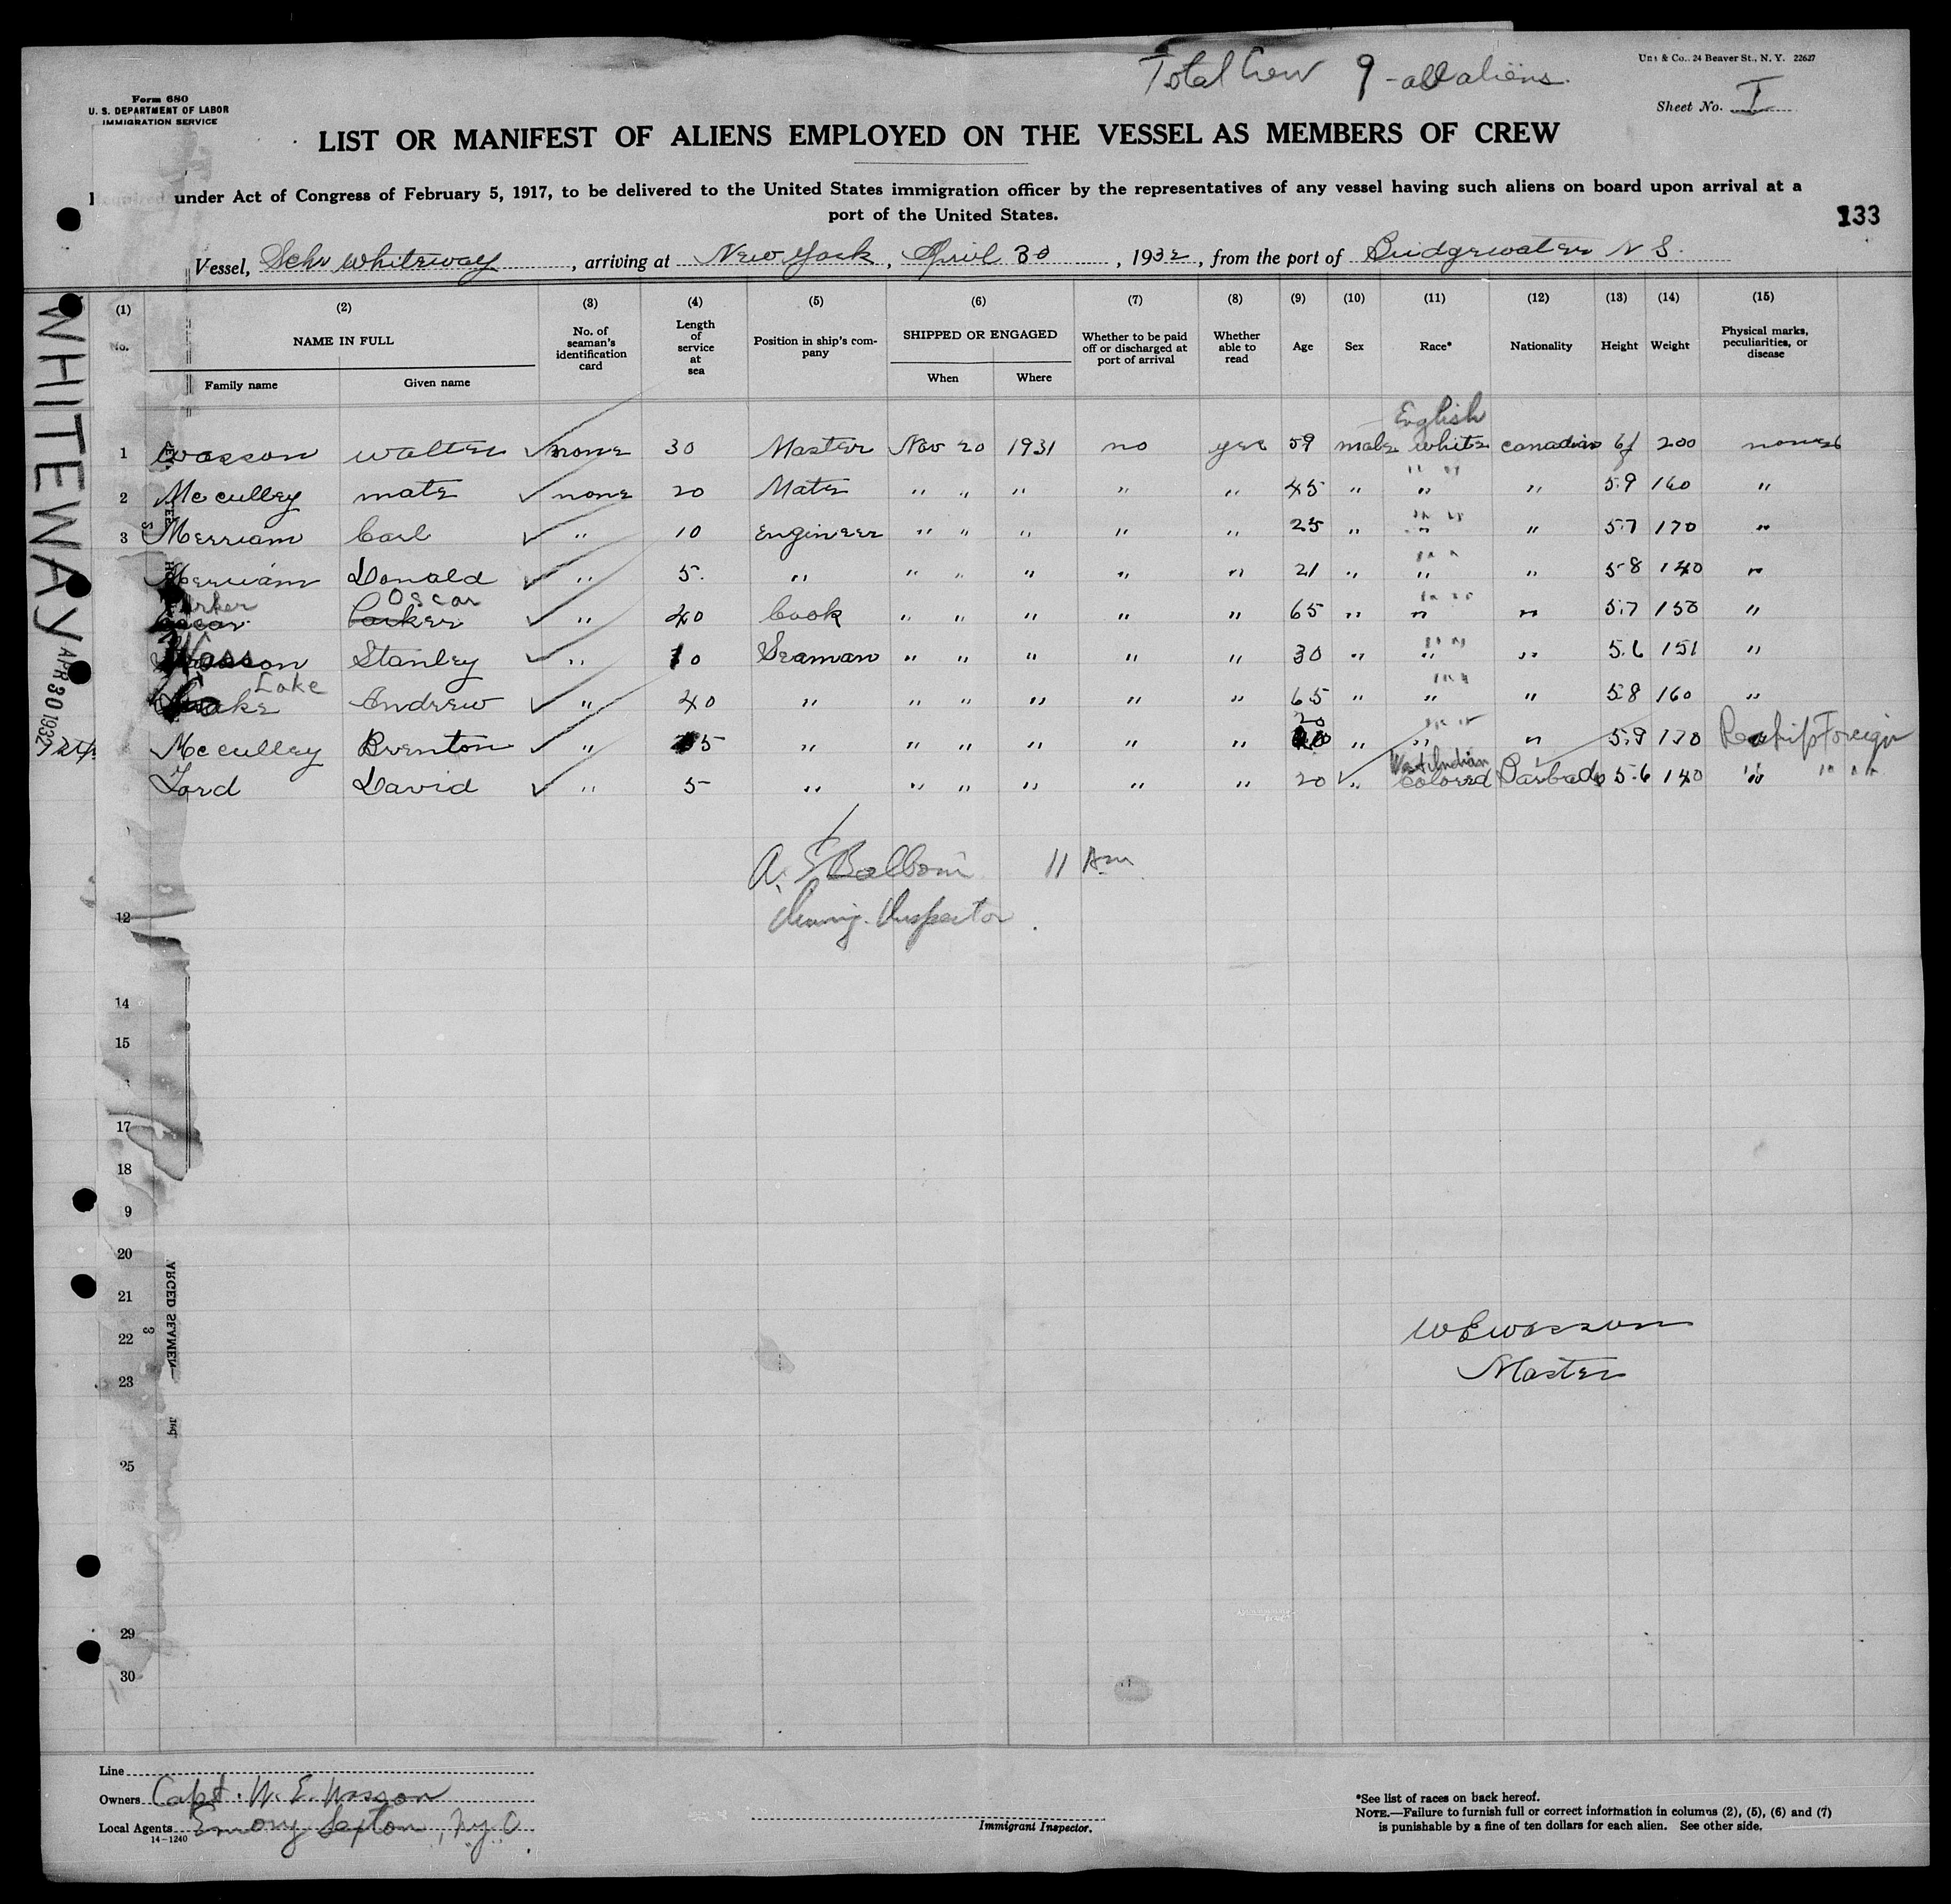 Total Crew 9 - all aliens.
Uns & Co., 24 Beaver St., N. Y. 22627
Form 680
U. S. DEPARTMENT OF LABOR
IMMIGRATION SERVICE
Sheet No. I
LIST OR MANIFEST OF ALIENS EMPLOYED ON THE VESSEL AS MEMBERS OF CREW
Required under Act of Congress of February 5, 1917, to be delivered to the United States immigration officer by the representatives of any vessel having such aliens on board upon arrival at a
port of the United States.
133
Vessel, Schr Whiteway, arriving at New York, April 30, 1932, from the port of Bridgewater N S.
(1) (2) (3) (4) (5) (6) (7) (8) (9) (10) (11) (12) (13) (14) (15)
No. NAME IN FULL No. of seaman's identification card Length of service at sea Position in ship's company SHIPPED OR ENGAGED Whether to be paid off or discharged at port of arrival Whether able to read Age Sex Race* Nationality Height Weight Physical marks, peculiarities, or disease
Family name Given name When Where
English
1 Wasson Walter none 30 Master Nov 20 1931 no yes 59 male white canadian 6f 200 none
2 Mc culley mate none 20 Mate " " " " " 45 " " " 5.9 160 "
3 Merriam Carl " 10 Engineer " " " " " 25 " " " 5.7 170 "
Merriam Donald " 5. " " " " " " 21 " " " 5.8 140 "
Parker Oscar
Oscar Parker " 40 Cook " " " " " 65 " " " 5.7 150 "
Wasson Stanley " 10 Seaman " " " " " 30 " " " 5.6 151 "
Lake
Andrew " 40 " " " " " " 65 " " " 5.8 160 "
20
Mc culley Brenton " 5 " " " " " " " " " 5.9 170 Reship Foreign
West Indian
Ford David " 5 " " " " " " 20 " colored Barbados 5.6 140 " " " "
11 Am
Immig. Inspector.
12
14
15
17
18
9
20
21
22
23
25
29
30
W E Wasson
Master
WHITEWAY
APR 30 1932
ARGED SEAMEN—
3
Line
Owners Capt. W. E. Wasson
Local Agents Emory Sexton, N.Y. C.
14-1240
Immigrant Inspector.
*See list of races on back hereof.
NOTE.—Failure to furnish full or correct information in columns (2), (5), (6) and (7)
is punishable by a fine of ten dollars for each alien. See other side.